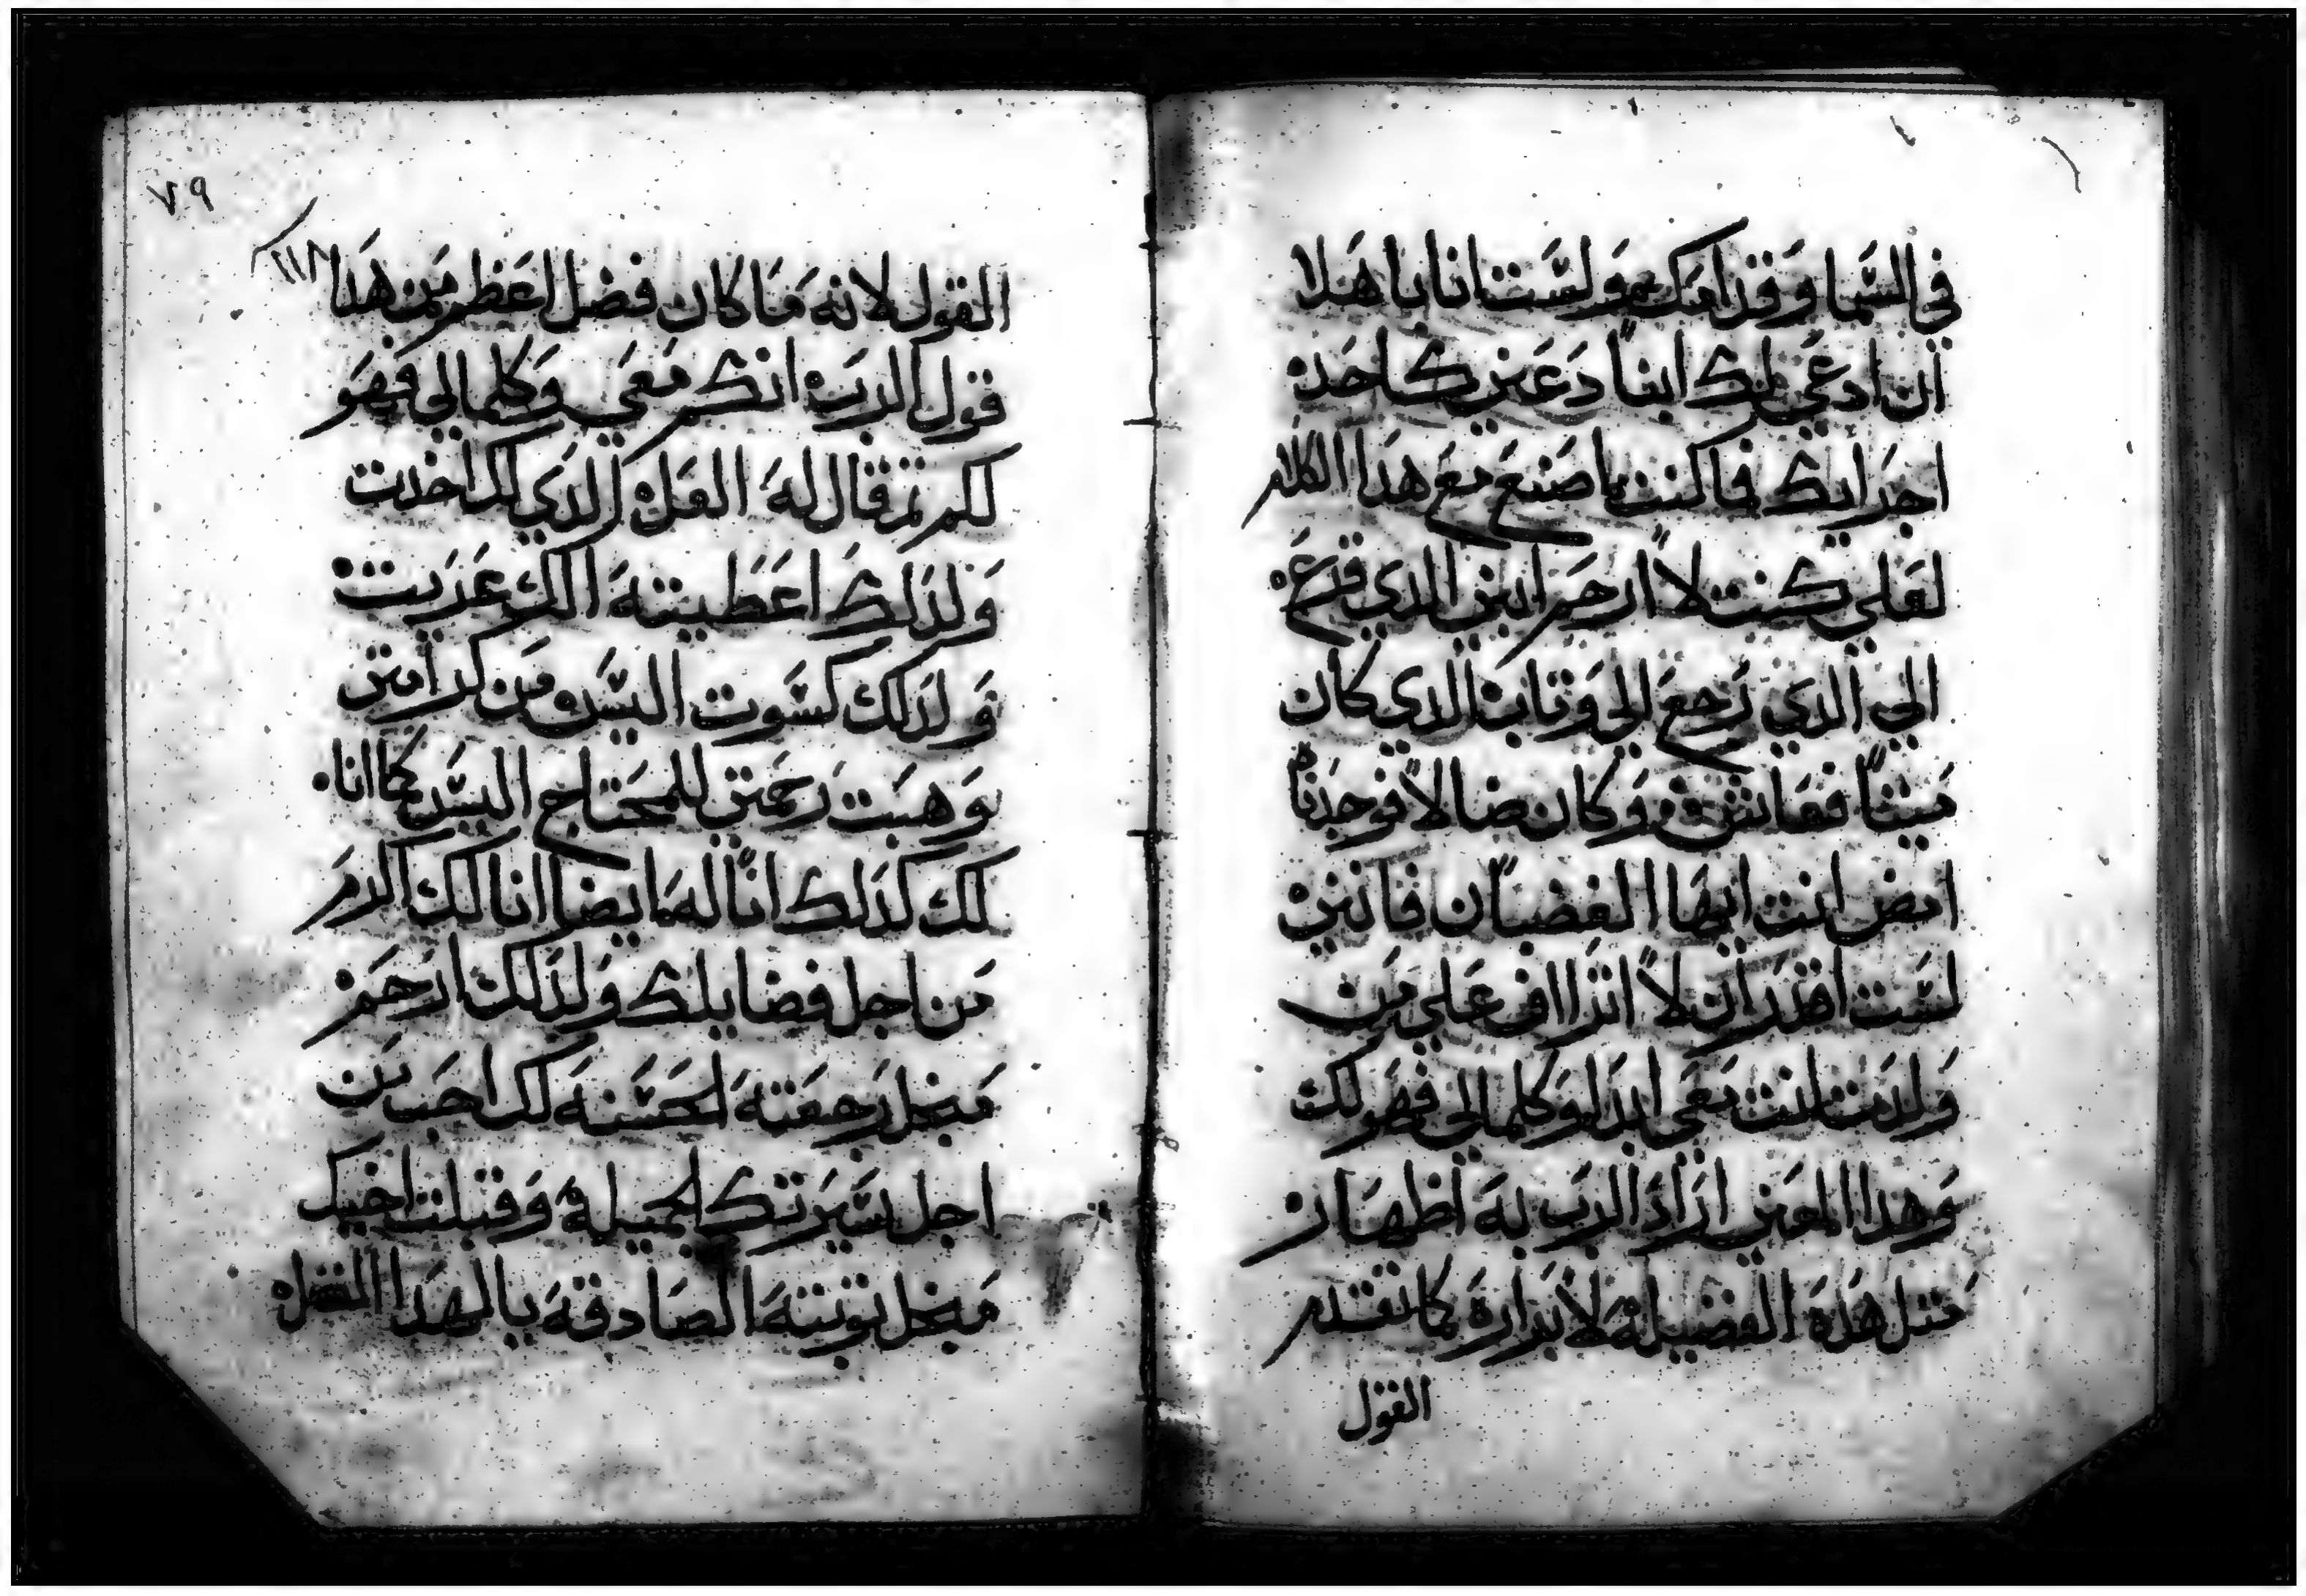 في السما وقدامك ولست انا باهلا
ان ادعي لك ابنا دعني كاحد
اجرايك فما كنت اصنع مع هدا الكلام
لعلي كنت لا ارحم ابني الدي قرع
الي الدي رجع الي وتاب الدي كان
ميتا فعاش وكان ضالا فوجدناه
امض انت ايها الغضبان فانني
لست اقدر ان لا اتراف علي من
ولدت انت معي ابدا وكلما لي فهو لك
وهدا المعني اراد الرب به اظهار
متل هده الفضيله لابراره كما تقدم
القول
٧٩
القول لانه ما كان فضل اعظم من هدا
قول الرب انك معي وكلما لي فهو
لكم تم قال له العل الدي لك اخدت
ولدلك اعطيته الك عريت
ولدلك كسوت اليس من كرامتي
وهبت رحمتي للمحتاج اليس كما انا
لك كدلك انا له ايضا انا لك اكرم
من اجل فضايلك ولدلك ارحم
من اجل رجعته الحسنه لك احب من
اجل سيرتك الجميله وقبلت اخيك
من اجل توبته الصادقه يا لهدا الفضل